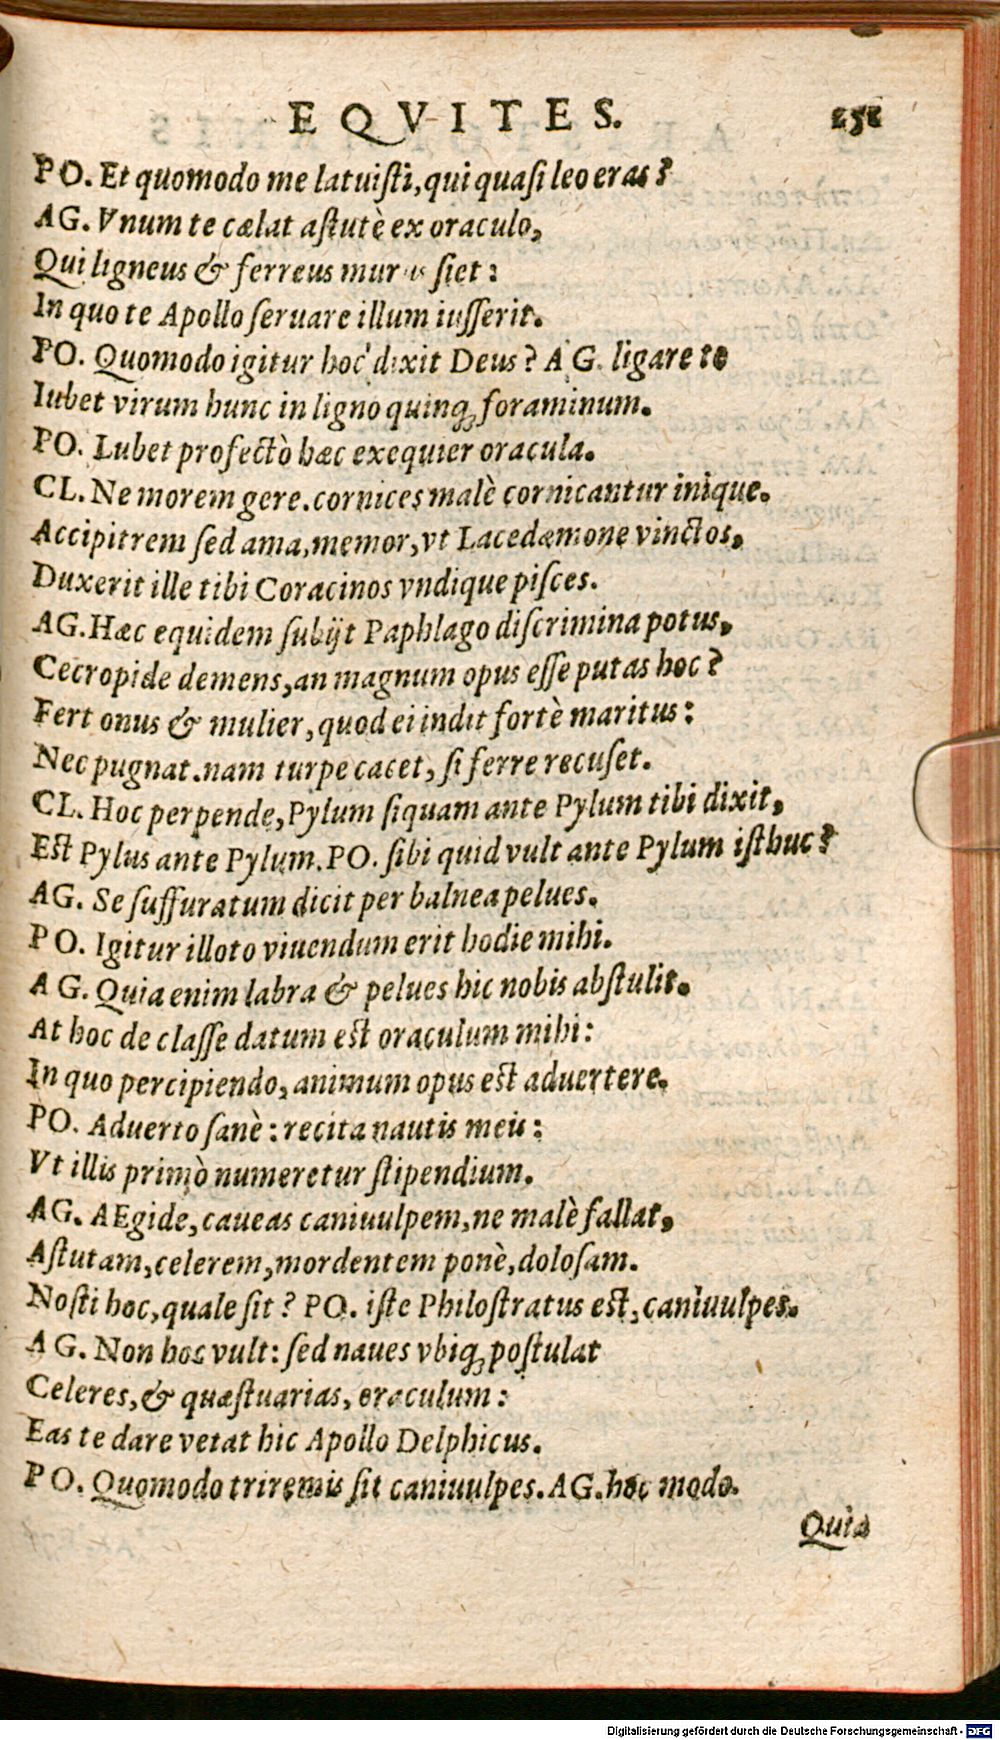 EQVITES. 251
PO. Et quomodo me latuisti, qui quasi leo eras?
AG. Vnum te cælat astutè ex oraculo,
Qui ligneus & ferreus murus siet:
In quo te Apollo seruare illum iusserit.
PO. Quomodo igitur hoc dixit Deus? AG. ligare te
Iubet virum hunc in ligno quinq; foraminum.
PO. Lubet profectò hæc exequier oracula.
CL. Ne morem gere. cornices malè cornicantur inique.
Accipitrem sed ama, memor, vt Lacedæmone vinctos,
Duxerit ille tibi Coracinos vndique pisces.
AG. Hæc equidem subijt Paphlago discrimina potus,
Cecropide demens, an magnum opus esse putas hoc?
Fert onus & mulier, quod ei indit fortè maritus:
Nec pugnat. nam turpe cacet, si ferre recuset.
CL. Hoc perpende, Pylum siquam ante Pylum tibi dixit,
Est Pylus ante Pylum. PO. sibi quid vult ante Pylum isthuc?
AG. Se suffuratum dicit per balnea pelues.
PO. Igitur illoto viuendum erit hodie mihi.
AG. Quia enim labra & pelues hic nobis abstulit.
At hoc de classe datum est oraculum mihi:
In quo percipiendo, animum opus est aduertere.
PO. Aduerto sanè: recita nautis meis:
Vt illis primò numeretur stipendium.
AG. AEgide, caueas caniuulpem, ne malè fallat,
Astutam, celerem, mordentem ponè, dolosam.
Nosti hoc, quale sit? PO. iste Philostratus est, caniuulpes.
AG. Non hoc vult: sed naues vbiq; postulat
Celeres, & quæstuarias, oraculum:
Eas te dare vetat hic Apollo Delphicus.
PO. Quomodo triremis sit caniuulpes. AG. hoc modo.
Quia
Digitalisierung gefördert durch die Deutsche Forschungsgemeinschaft - DFG